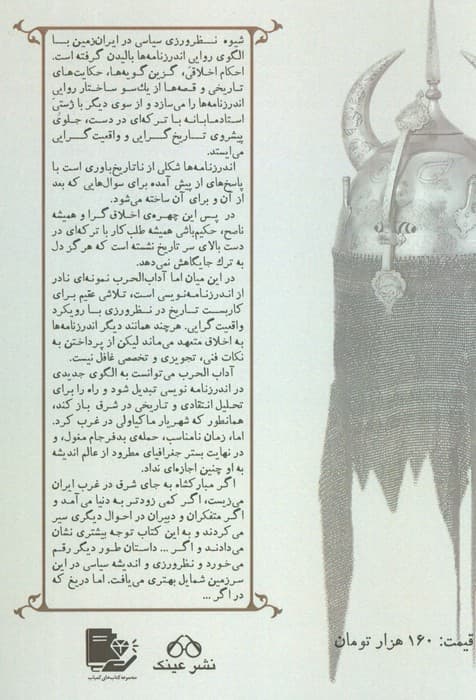 شیوه نظرورزی سیاسی در ایران‌زمین با
الگوی روایی اندرزنامه‌ها بالیدن گرفته است.
احکام اخلاقی، گزین گویه‌ها، حکایت‌های
تاریخی و قصه‌ها از یک‌سو ساختار روایی
اندرزنامه‌ها را می‌سازد و از سوی دیگر با ژستی
استادمابانه با ترکه‌ای در دست، جلوی
پیشروی تاریخ‌گرایی و واقعیت گرایی
می‌ایستد.
اندرزنامه‌ها شکلی از ناتاریخ‌باوری است با
پاسخ‌های از پیش آمده برای سوال‌هایی که بعد
از آن و برای آن ساخته می‌شود.
در پس این چهره‌ی اخلاق گرا و همیشه
ناصح، حکیم‌باشی همیشه طلب‌کار با ترکه‌ای در
دست بالای سر تاریخ نشسته است که هرگز دل
به ترک جایگاهش نمی‌دهد.
در این میان اما آداب‌الحرب نمونه‌ای نادر
از اندرزنامه‌نویسی است، تلاشی عقیم برای
کاربست تاریخ در نظرورزی با رویکرد
واقعیت گرایی. هرچند همانند دیگر اندرزنامه‌ها
به اخلاق متعهد می‌ماند لیکن از پرداختن به
نکات فنی، تجویزی و تخصصی غافل نیست.
آداب الحرب می‌توانست به الگوی جدیدی
در اندرزنامه نویسی تبدیل شود و راه را برای
تحلیل انتقادی و تاریخی در شرق باز کند،
همانطور که شهریار ماکیاولی در غرب کرد.
اما، زمان نامناسب، حمله‌ی بدفرجام مغول، و
در نهایت بستر جغرافیای مطرود از عالم اندیشه
به او چنین اجازه‌ای نداد.
اگر مبارکشاه به جای شرق در غرب ایران
می‌زیست، اگر کمی زودتر به دنیا می آمد و
اگر متفکران و دبیران در احوال دیگری سیر
می‌کردند و به این کتاب توجه بیشتری نشان
می‌دادند و اگر ... داستان طور دیگر رقم
می‌خورد و نظرورزی و اندیشه سیاسی در این
سرزمین شمایل بهتری می‌یافت. اما دریغ که
در اگر ...
قیمت: ۱۶۰ هزار تومان
نشر عینک
مجموعه کتاب‌های کمیاب